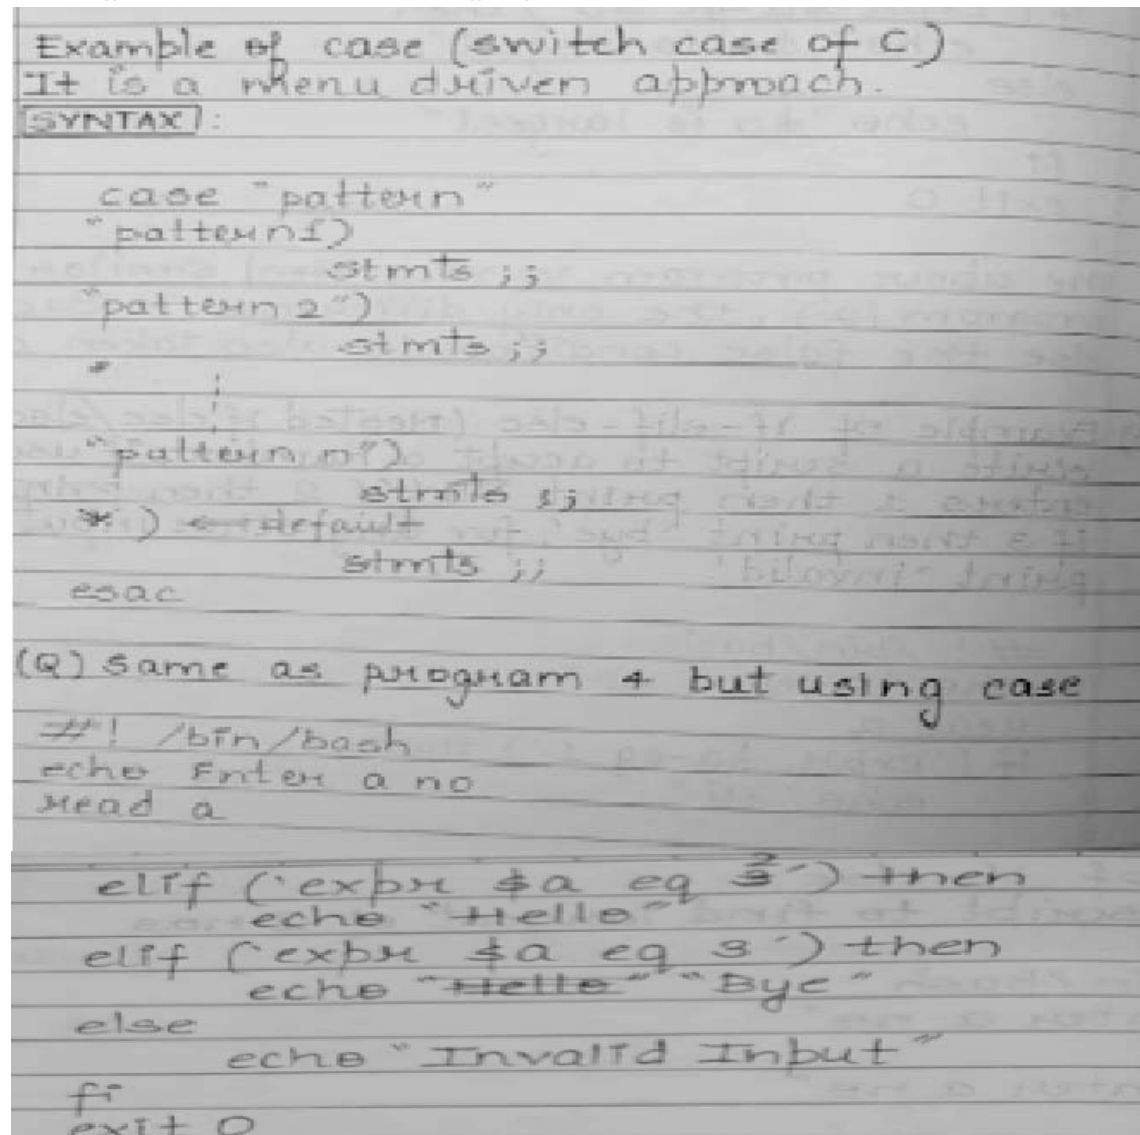 Example of case (switch case of C)
It is a menu driven approach.
SYNTAX :
case "pattern"
"pattern1)
stmts ;;
"pattern 2")
stmts ;;
"pattern n")
stmts ;;
*) ← default
stmts ;;
esac
(Q) Same as program 4 but using case
#! /bin/bash
echo Enter a no
read a
elif (`expr $a eq 2`) then
echo "Hello"
elif (`expr $a eq 3`) then
echo "Hello" "Bye"
else
echo "Invalid Input"
fi
exit 0